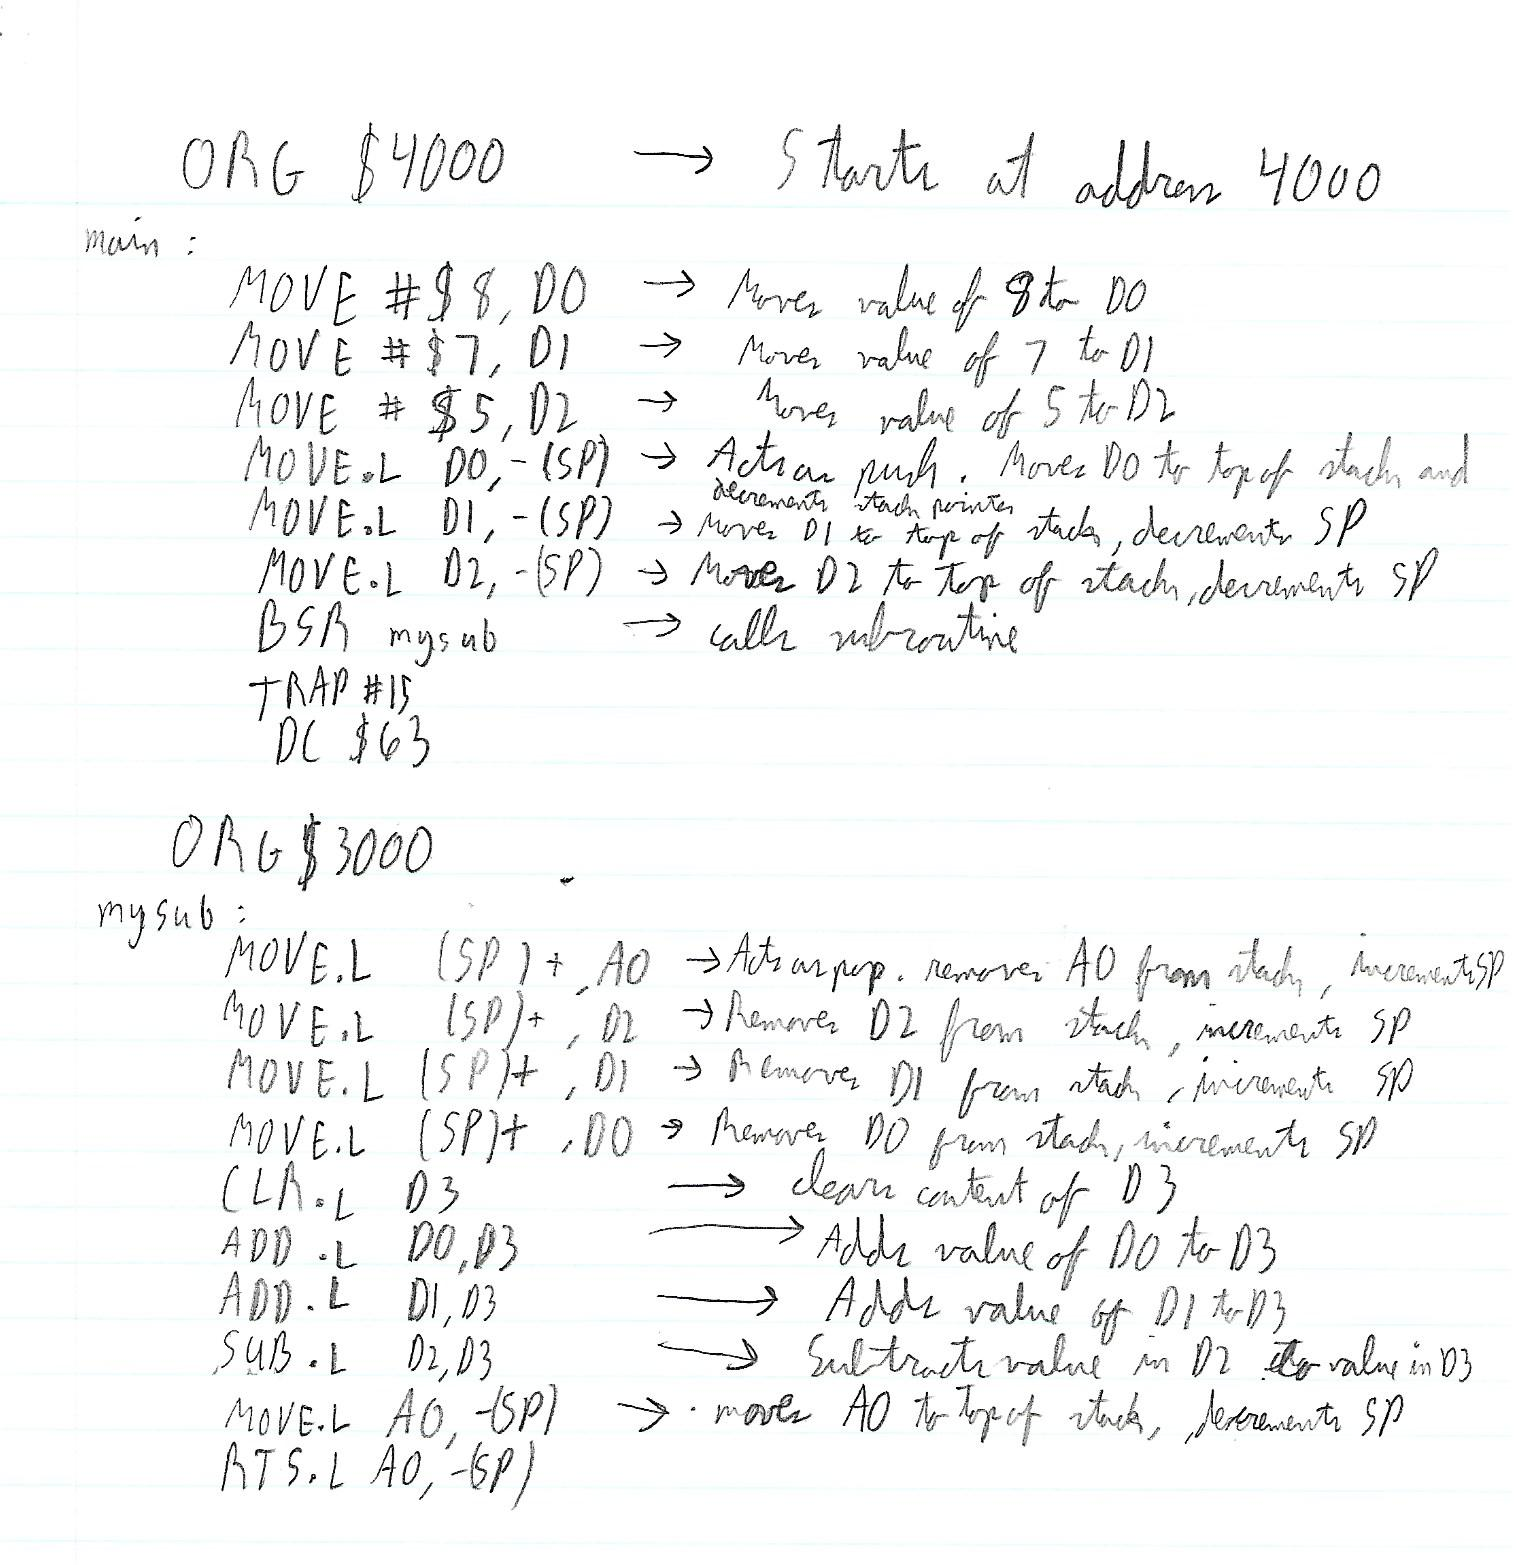 ORG $4000 → Starts at address 4000
main :
MOVE #$8, D0 → Moves value of 8 to D0
MOVE #$7, D1 → Moves value of 7 to D1
MOVE # $5, D2 → Moves value of 5 to D2
MOVE.L D0, -(SP) → Acts as push. Moves D0 to top of stack and
decrements stack pointer
MOVE.L D1, -(SP) → Moves D1 to top of stack, decrements SP
MOVE.L D2, -(SP) → Moves D2 to top of stack, decrements SP
BSR mysub → calls subroutine
TRAP #15
DC $63
ORG $3000
mysub :
MOVE.L (SP)+, A0 → Acts as pop. removes A0 from stack, increments SP
MOVE.L (SP)+, D2 → Removes D2 from stack, increments SP
MOVE.L (SP)+, D1 → Removes D1 from stack, increments SP
MOVE.L (SP)+, D0 → Removes D0 from stack, increments SP
CLR.L D3 → clears content of D3
ADD.L D0, D3 → Adds value of D0 to D3
ADD.L D1, D3 → Adds value of D1 to D3
SUB.L D2, D3 → Subtracts value in D2 to value in D3
MOVE.L A0, -(SP) → moves A0 to top of stack, decrements SP
RTS.L A0, -(SP)